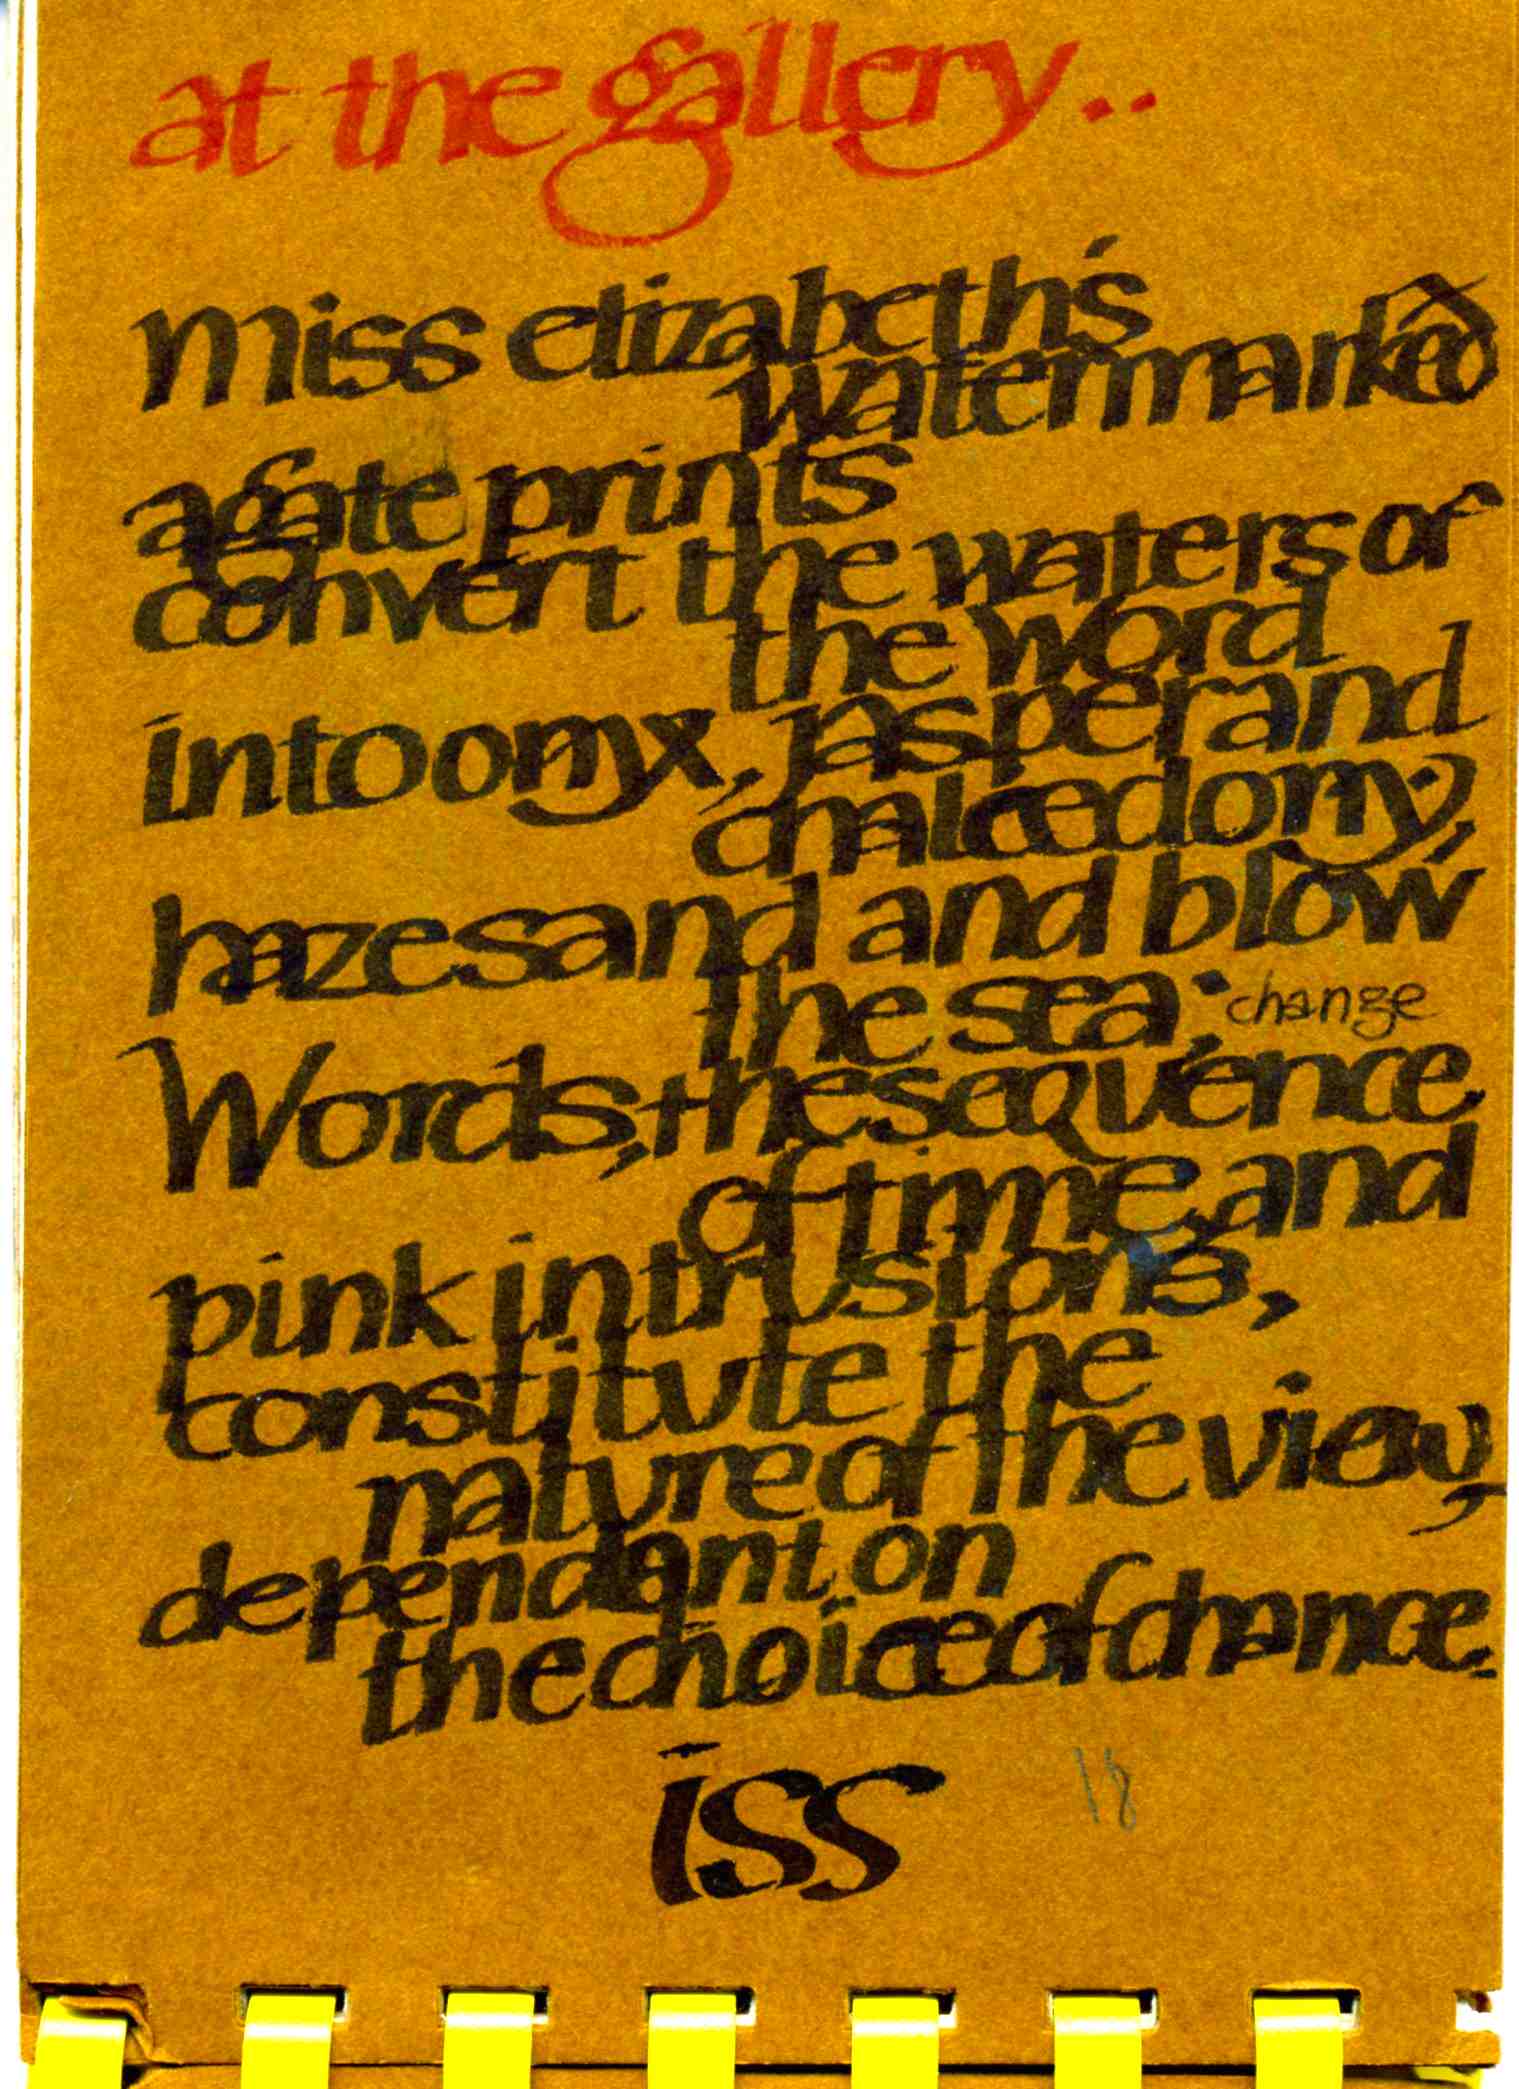 at the gallery..
Miss elizabeth's
watermarked
agate prints
convert the waters of
the word
into onyx, jasper and
chalcedony,
haze sand and blow
the sea. change
Words, the sequence
of time, and
pink intrusions,
constitute the
nature of the view,
dependant on
the choice of chance.
iss
18